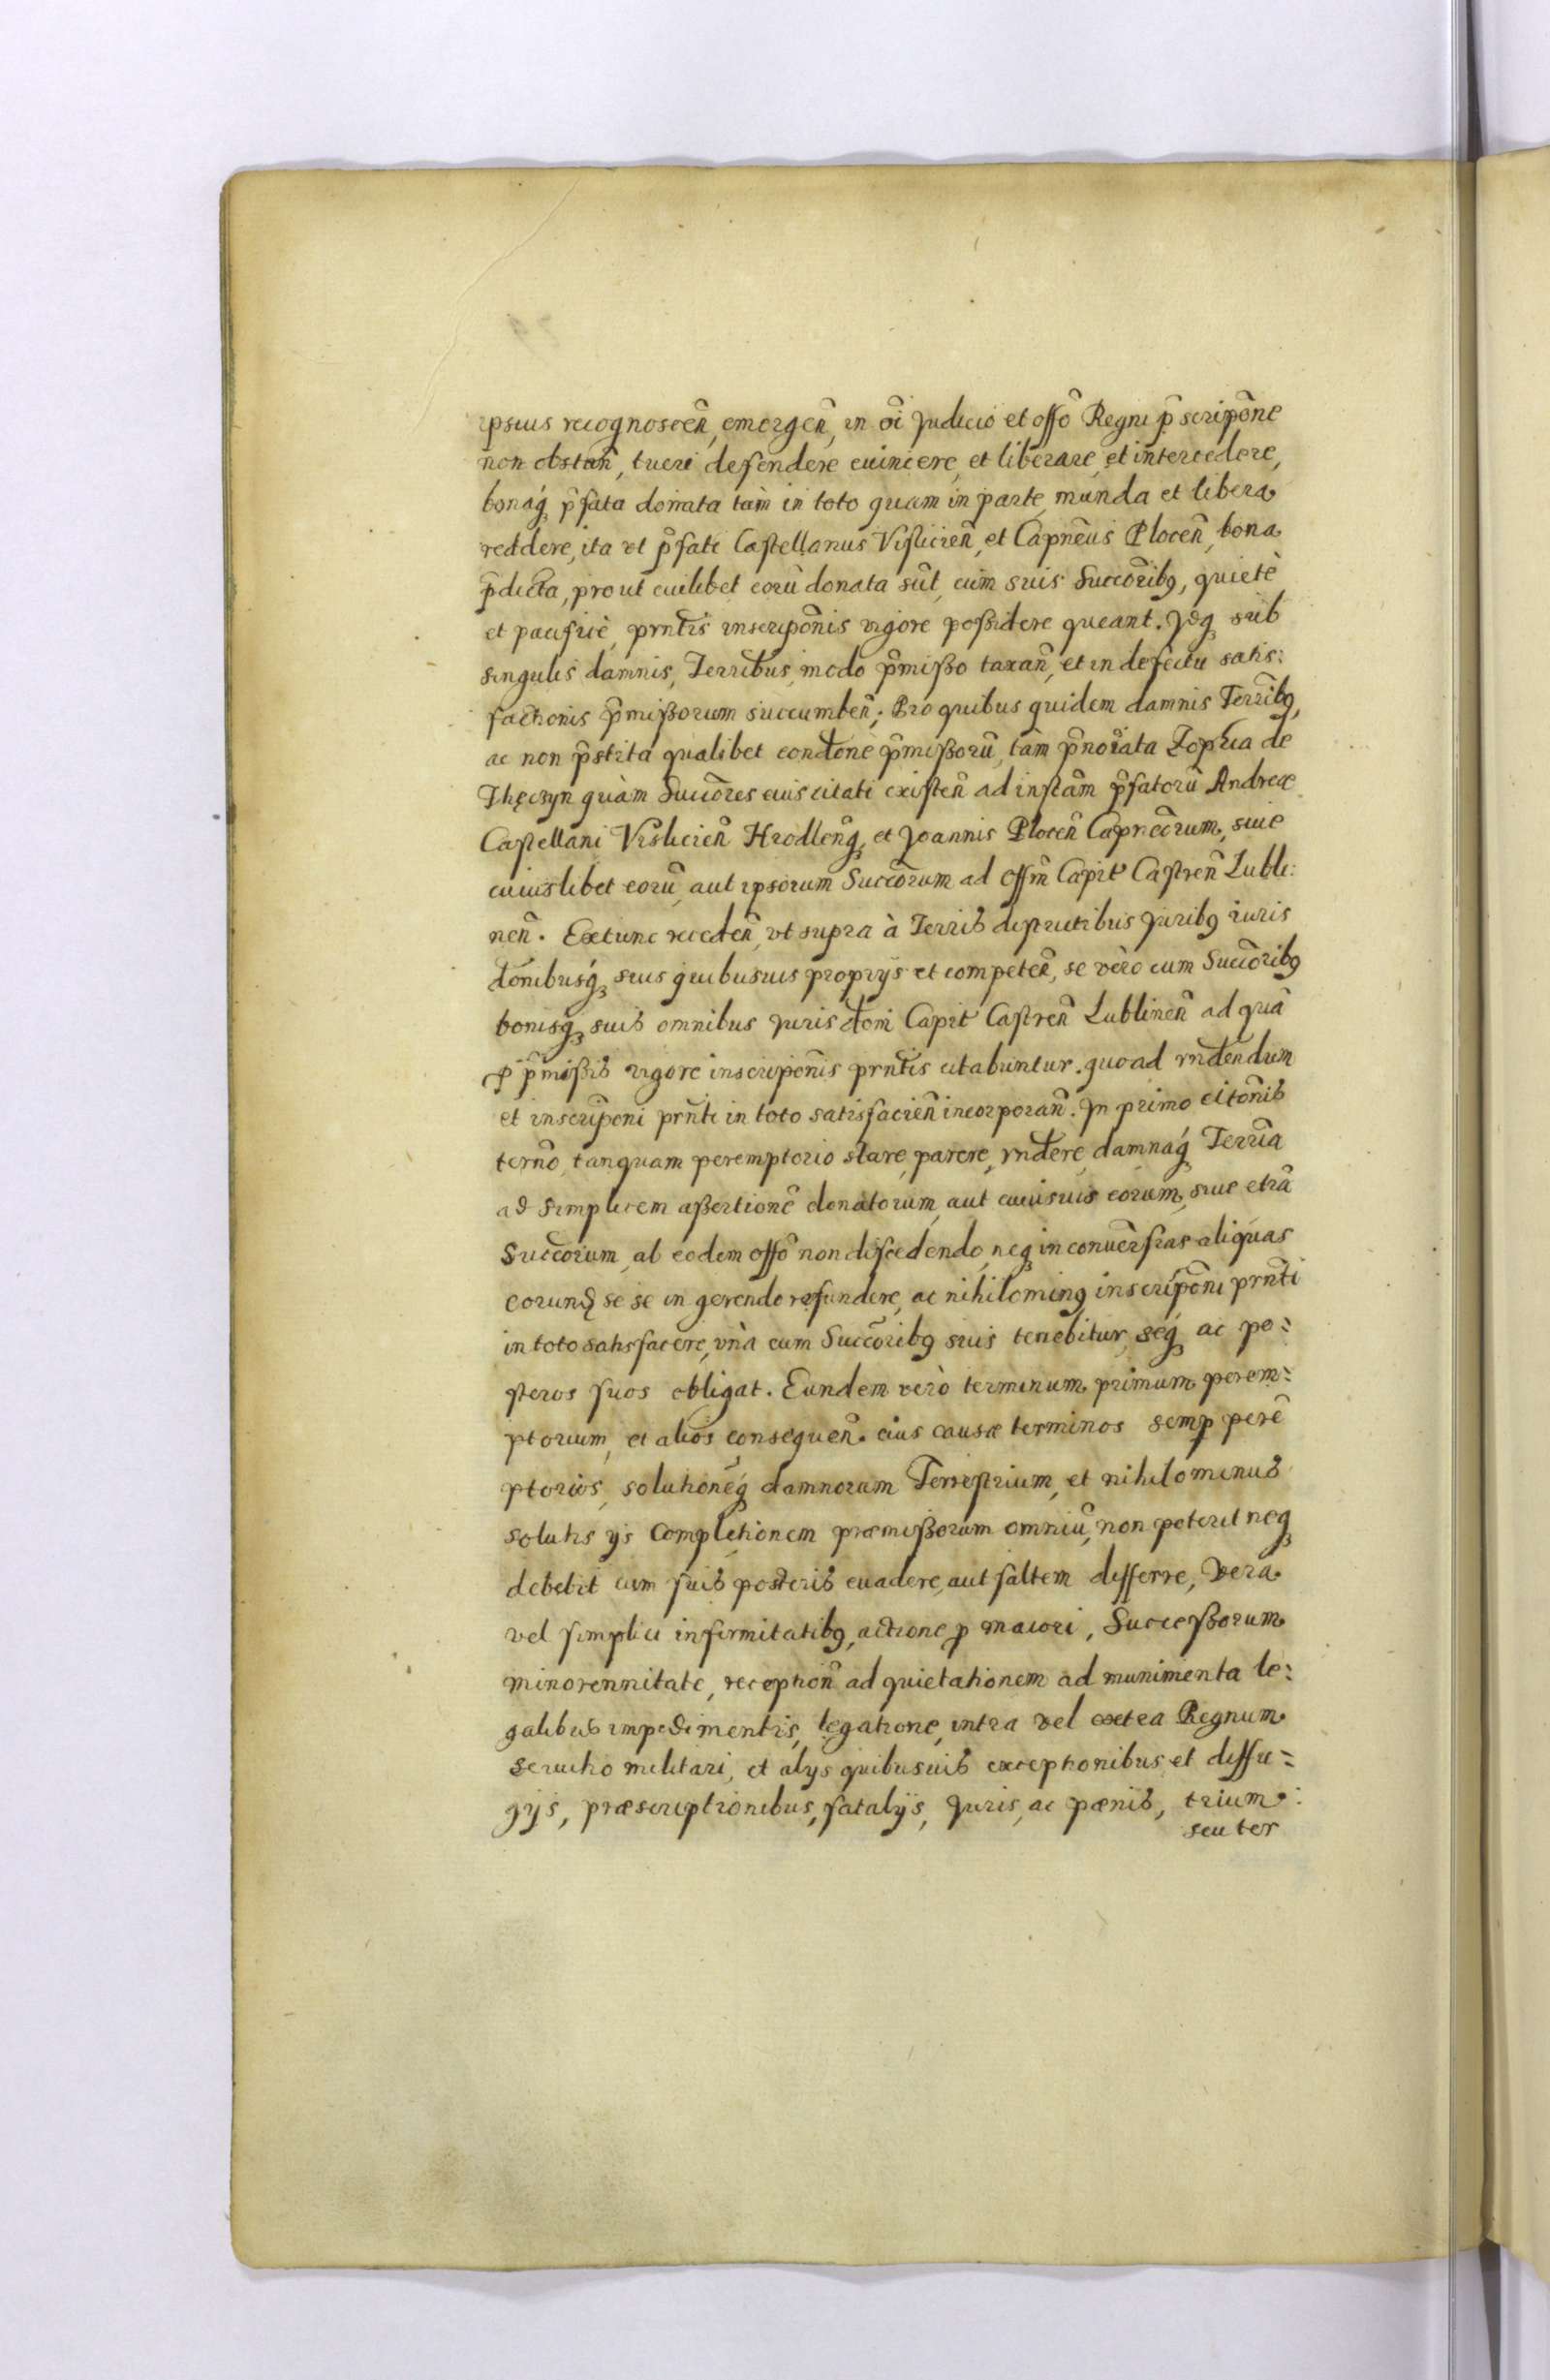 ipsius recognoscen̄, emergen̄, in o͞i Judicio et offo͞ Regni p͞scripo͞ne
non obstan̄, tueri defendere euincere, et liberare, et intercedere,
bonaq́ꝫ p͞fata donata tàm in toto quam in parte munda et libera
reddere, ita vt p͞fati Castellanus Vislicien̄, et Capne͞us Plocen̄, bona
p͞dicta, prout cuilibet eorū donata sūt, cum suis Succo͞ribꝯ, quietè
et pacificè, prn͞tis inscripo͞nis vigore possidere queant. Idqꝫ sub
singulis damnis, Terribus, modo p͞misso taxan̄, et in defectu satis:
factionis p͞missorum succumben̄; Pro quibus quidem damnis Terri͞bꝯ,
ac non p͞stita qualibet condt͞one p͞missorū, tàm p͞no͞iata Zophia de
Thęczyn quàm Succo͞res eius citati existen̄ ad insta͞m p͞fatorū Andreæ
Castellani Vislicien̄ Hrodlen̄qꝫ, et Joannis Plocen̄ Capneo͞rum, siue
cuiuslibet eorū, aut ipsorum Succo͞rum ad offm̄ Capit͞ Castren̄ Lubli:
nen̄. Extunc receden̄, vt supra à Terris districtibus Juribꝯ iuris
dt͞onibusq́ꝫ suis quibusuis proprijs et competen̄, se vèro cum Succo͞ribꝯ
bonisqꝫ suis omnibus Jurisdt͞oni Capit͞ Castren̄ Lublinen̄ ad quā
ꝓ p͞missis vigore inscripo͞nis prn͞tis citabuntur. quoad rn͞dendum
et inscripo͞ni prn͞ti in toto satisfacien̄ incorporan̄. In primo cito͞nis
termo͞, tanquam peremptorio stare, parere, rn͞dere, damnaq́ꝫ Terri͞a
ad simplicem assertionē donatorum, aut cuiusuis eorum, siue etiā
Succo͞rum, ab eodem offo͞ non discedendo, neqꝫ in conuer͞sias aliquas
eorundꝫ se se in gerendo refundere, ac nihilominꝯ inscripo͞ni prn͞ti
in toto satisfacere, vnà cum Succo͞ribꝯ suis tenebitur, seq́ꝫ ac po⸗
steros suos obligat. Eundem verò terminum primum perem⸗
ptorium, et alios consequen̄. eius causæ terminos semꝑ perē
ptorios, solutionēqꝫ damnorum Terrestrium, et nihilominus
solutis ijs completionem præmissorum omniū, non poterit neqꝫ
debebit cum suis posteris euadere, aut saltem differre, vera
vel simplici infirmitatibꝯ, actione ꝓ maiori, Successorum
minorennitate, reception̄ ad quietationem ad munimenta le:
galibus impedimentis, legatione, intra vel extra Regnum
seruitio militari, et alijs quibusuis exceptionibus, et diffu⸗
gijs, præscriptionibus, fatalijs, Juris, ac pœnis, trium
seu ter